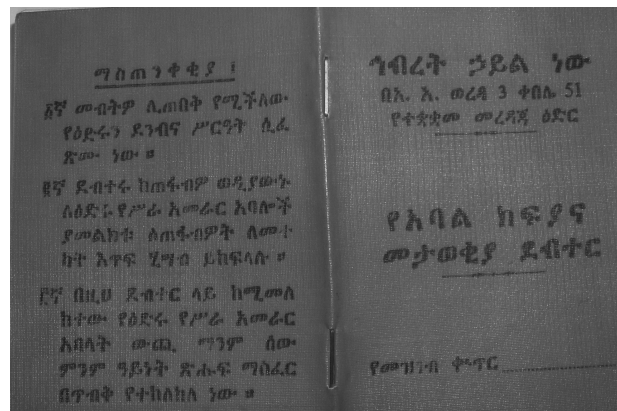 ማስጠንቀቂያ ፤
፩ኛ መብትዎ ሊጠበቅ የሚችለው
የዕድሩን ደንብና ሥርዓት ሲፈ
ጽሙ ነው ።
፪ኛ ደብተሩ ከጠፋብዎ ወዲያውኑ
ለዕድሩ የሥራ አመራር አባሎች
ያመልክቱ ስጠፋብዎት ለመተ
ካት እጥፍ ሂሣብ ይከፍላሉ ።
፫ኛ በዚህ ደብተር ላይ ከሚመለ
ከተው የዕድሩ የሥራ አመራር
አባላት ውጪ ማንም ሰው
ምንም ዓይነት ጽሑፍ ማስፈር
በጥብቅ የተከለከለ ነው ።
ኅብረት ኃይል ነው
በአ. አ. ወረዳ 3 ቀበሌ 51
የተቋቋመ መረዳጃ ዕድር
የአባል ክፍያና
መታወቂያ ደብተር
የመዝገብ ቍጥር